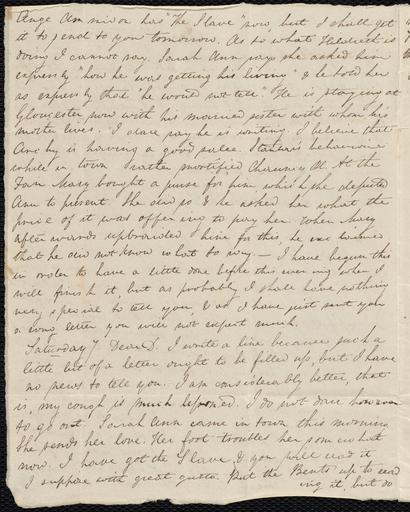 has "the Slave" now, but I shall get
it to send to you tomorrow. As to what Hildreth is
doing I cannot say. Sarah Ann says she asked him
expressly "how he was getting his living" & he told her
as expressly that "he would not tell." He is staying at
Gloucester now with his married sister with whom his
mother lives. I dare say he is writing. I believe that
is having a good sale. behaviour
while in town rather mortified Chauncy St. At the
Fair Mary bought a purse for him, which she deputed
Ann to present. She did so & he asked her what the
price of it was offering to pay her. When Mary
afterwards upbraided him for this, he exclaimed
that he did not know what to say. — I have begun this
in order to have a little done before this evening when I
will finish it, but as probably I shall have nothing
very special to tell you, & as I have just sent you
a long letter you will not expect much.
Saturday 7 Dear D. I write a line because such a
little bit of a letter ought to be filled up, but I have
no news to tell you. I am considerably better, that
is, my cough is much lessened. I do not dare however
to go out. Sarah Ann came in town this morning
She sends her love. Her foot troubles her somewhat
now. I have got the Slave & you will read it
I suppose with great gusto. Put the Bents up to read
ing it, but do